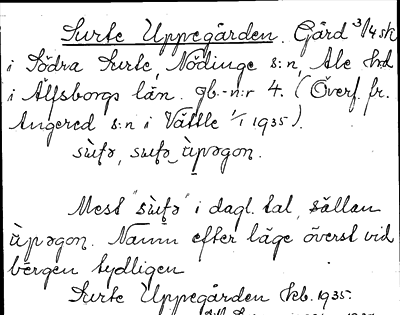 Surte Uppegården. Gård 3/4 sk
i Södra Surte, Nödinge s:n, Ale hd
i Älfsborgs län. gb.-n:r 4. (Överf. fr.
Angered s:n i Vättle 1/1 1935).
Mest "sùʈə" i dagl. tal, sällan
ùpəgɔn. Namn efter läge överst vid
bergen tydligen
Surte Uppegården Jrb. 1935.